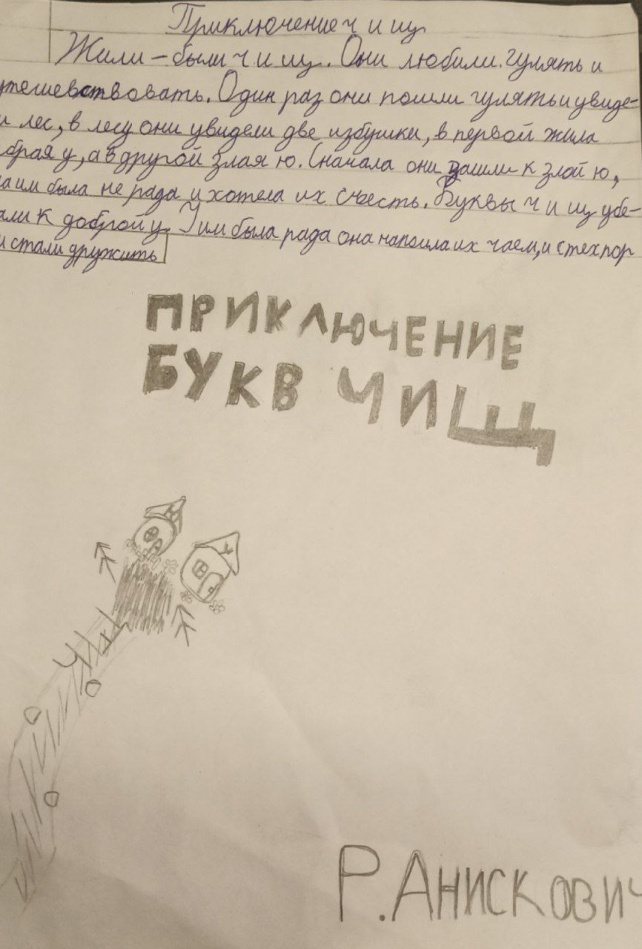 Приключение ч и щ
Жили-были ч и щ. Они любили гулять и
утешествовать. Один раз они пошли гулять и увиде-
и лес, в лесу они увидели две избушки, в первой жила
брая у, а в другой злая ю. Сначала они зашли к злой ю,
на им была не рада и хотела их съесть. Буквы ч и щ убе-
али к доброй у. У им была рада она напоила их чаем, и с тех пор
и стали дружить
ПРИКЛЮЧЕНИЕ
БУКВ Ч И Щ
Ч И Щ
Р. АНИСКОВИЧ